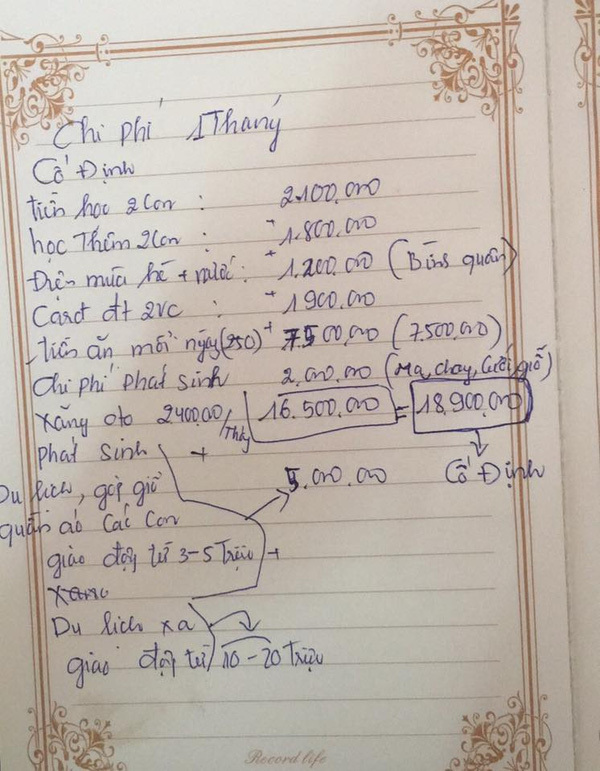 Chi phí 1 Tháng
Cố Định
tiền học 2 Con : 2.100.000
học Thêm 2 Con : + 1.800.000
Điện mùa hè + nước : + 1.200.000 (Bình quân)
Card đt 2VC : + 1900.000
tiền ăn mỗi ngày (250) + 7500,000 (7.500,000)
Chi phí phát sinh 2.000.000 (Ma, chay, cưới, giỗ)
xăng oto 2400.00/Thág 16.500.000 = 18.900.000
phát sinh +
Du lịch, gửi giỗ 5.000.000 Cố Định
quần áo Các Con
giao động từ 3-5 Triệu +
Du lịch xa
giao động từ 10-20 Triệu
Record life